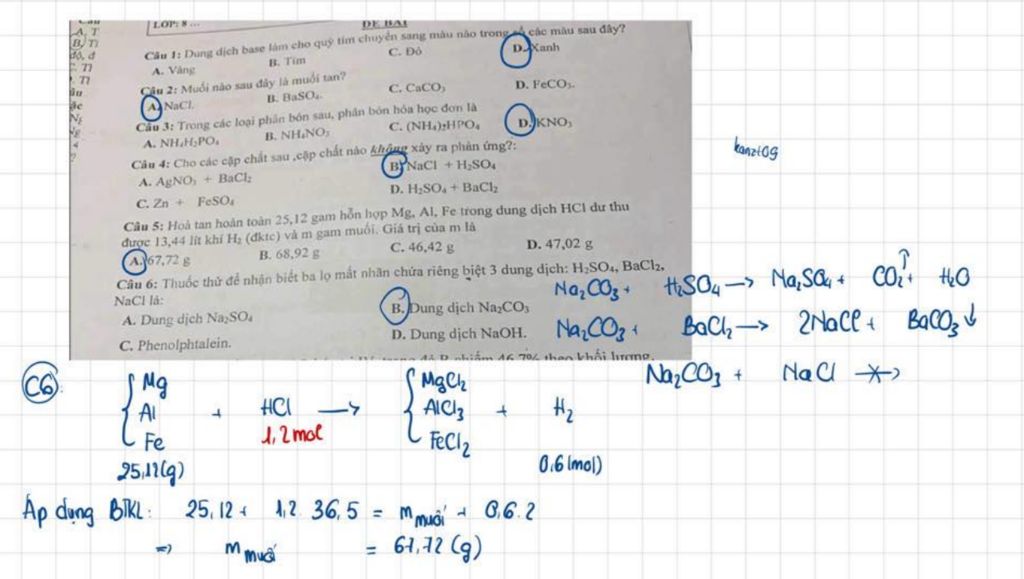 LỚP: 8 ...
ĐỀ BÀI
Câu 1: Dung dịch base làm cho quỳ tím chuyển sang màu nào trong số các màu sau đây?
A. Vàng B. Tím C. Đỏ D. Xanh
Câu 2: Muối nào sau đây là muối tan?
A. NaCl. B. BaSO₄. C. CaCO₃ D. FeCO₃.
Câu 3: Trong các loại phân bón sau, phân bón hóa học đơn là
A. NH₄H₂PO₄ B. NH₄NO₃ C. (NH₄)₂HPO₄ D. KNO₃
kanz10g
Câu 4: Cho các cặp chất sau ,cặp chất nào không xảy ra phản ứng?:
A. AgNO₃ + BaCl₂ B. NaCl + H₂SO₄
C. Zn + FeSO₄ D. H₂SO₄ + BaCl₂
Câu 5: Hoà tan hoàn toàn 25,12 gam hỗn hợp Mg, Al, Fe trong dung dịch HCl dư thu
được 13,44 lít khí H₂ (đktc) và m gam muối. Giá trị của m là
A. 67,72 g B. 68,92 g C. 46,42 g D. 47,02 g
Câu 6: Thuốc thử để nhận biết ba lọ mất nhãn chứa riêng biệt 3 dung dịch: H₂SO₄, BaCl₂,
NaCl là:
A. Dung dịch Na₂SO₄ B. Dung dịch Na₂CO₃
C. Phenolphtalein. D. Dung dịch NaOH.
Na₂CO₃ + H₂SO₄ → Na₂SO₄ + CO₂↑ + H₂O
Na₂CO₃ + BaCl₂ → 2NaCl + BaCO₃↓
46,7% theo khối lượng.
Na₂CO₃ + NaCl -X->
C6:
Mg MgCl₂
Al + HCl → AlCl₃ + H₂
1,2 mol
Fe FeCl₂
25,12(g) 0,6(mol)
Áp dụng BTKL: 25,12 + 1,2. 36,5 = m muối + 0,6.2
=> m muối = 67,72 (g)